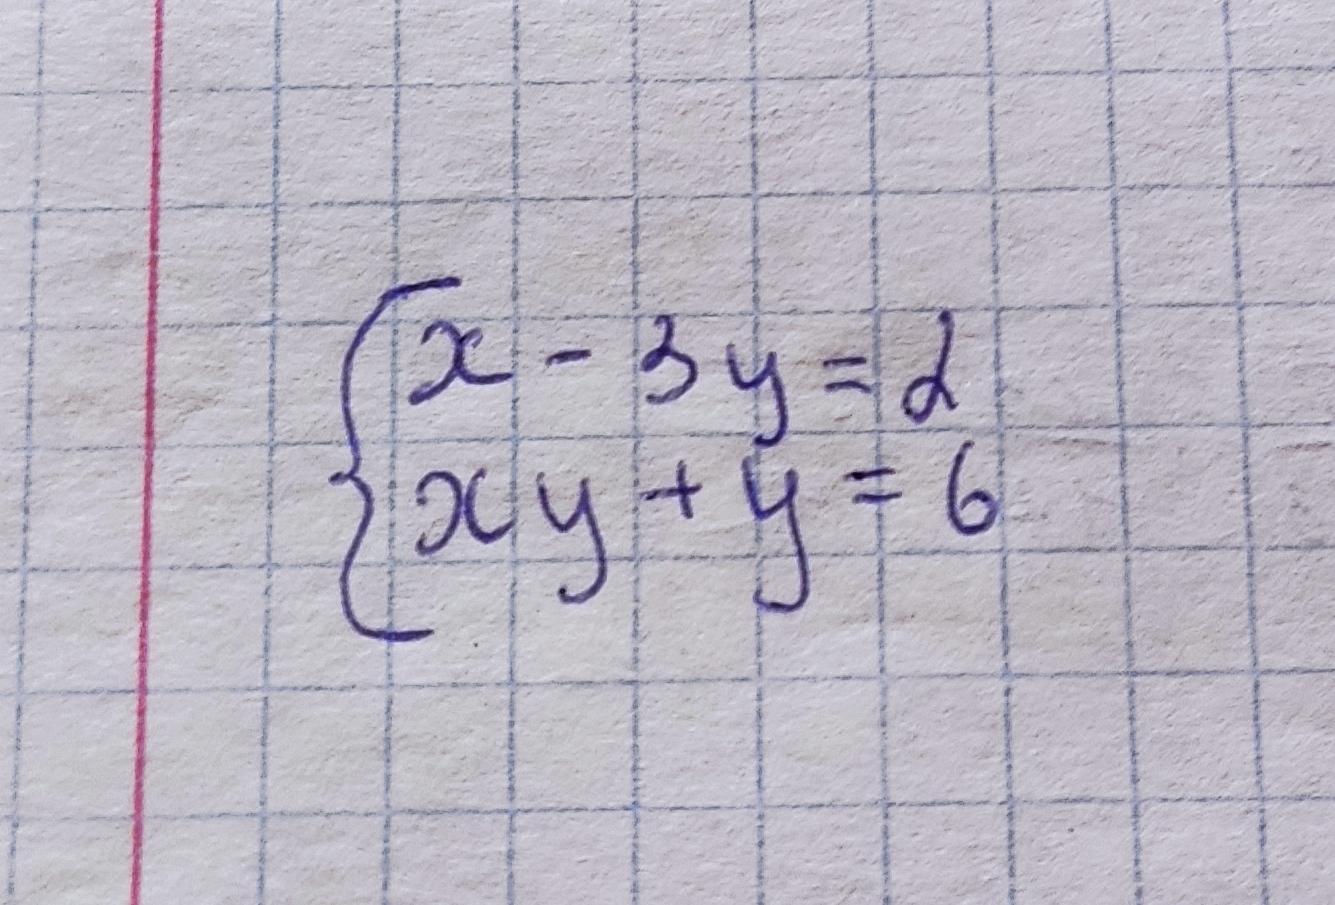 x - 3y = 2
xy + y = 6